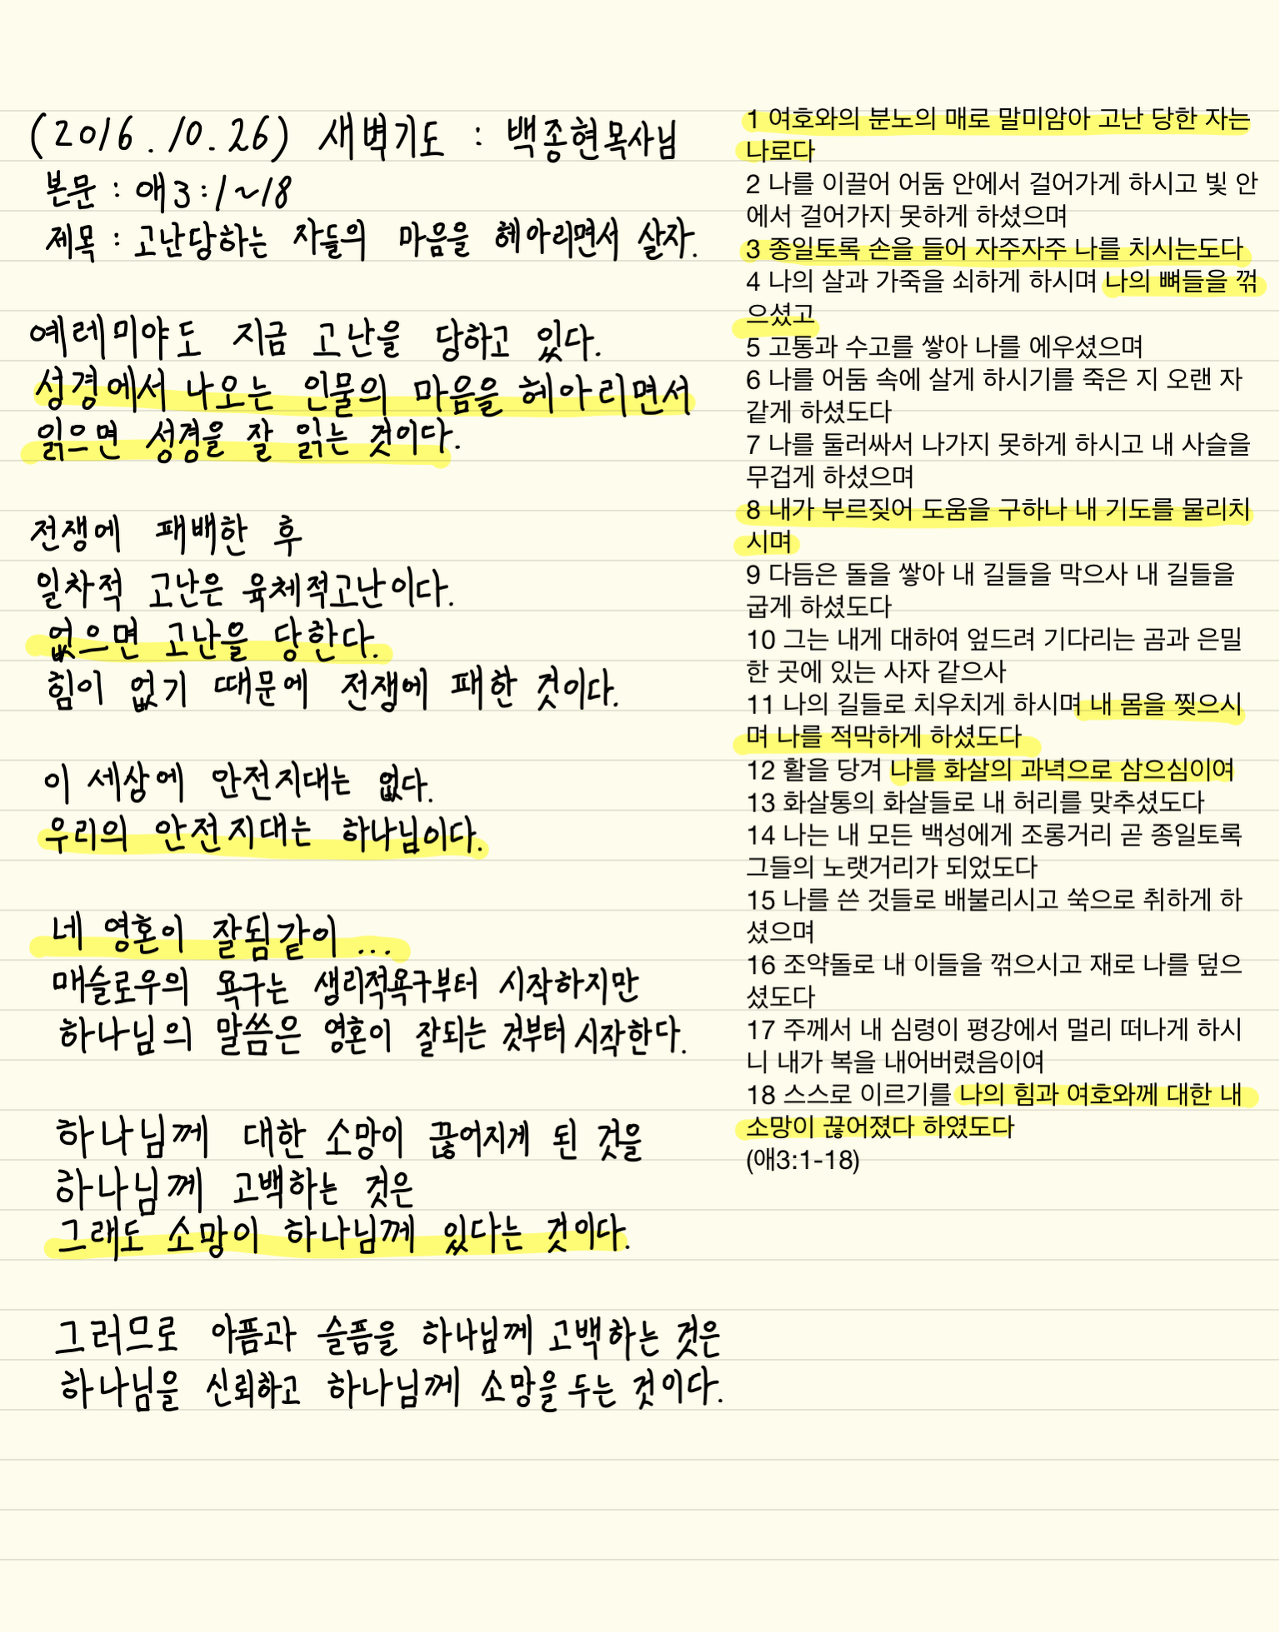 (2016.10.26) 새벽기도 : 백종현목사님
본문 : 애3:1~18
제목 : 고난당하는 자들의 마음을 헤아리면서 살자.
예레미야도 지금 고난을 당하고 있다.
성경에서 나오는 인물의 마음을 헤아리면서
읽으면 성경을 잘 읽는 것이다.
전쟁에 패배한 후
일차적 고난은 육체적고난이다.
없으면 고난을 당한다.
힘이 없기 때문에 전쟁에 패한 것이다.
이 세상에 안전지대는 없다.
우리의 안전지대는 하나님이다.
네 영혼이 잘됨같이 ...
매슬로우의 욕구는 생리적욕구부터 시작하지만
하나님의 말씀은 영혼이 잘되는 것부터 시작한다.
하나님께 대한 소망이 끊어지게 된 것을
하나님께 고백하는 것은
그래도 소망이 하나님께 있다는 것이다.
그러므로 아픔과 슬픔을 하나님께 고백하는 것은
하나님을 신뢰하고 하나님께 소망을 두는 것이다.
1 여호와의 분노의 매로 말미암아 고난 당한 자는
나로다
2 나를 이끌어 어둠 안에서 걸어가게 하시고 빛 안
에서 걸어가지 못하게 하셨으며
3 종일토록 손을 들어 자주자주 나를 치시는도다
4 나의 살과 가죽을 쇠하게 하시며 나의 뼈들을 꺾
으셨고
5 고통과 수고를 쌓아 나를 에우셨으며
6 나를 어둠 속에 살게 하시기를 죽은 지 오랜 자
같게 하셨도다
7 나를 둘러싸서 나가지 못하게 하시고 내 사슬을
무겁게 하셨으며
8 내가 부르짖어 도움을 구하나 내 기도를 물리치
시며
9 다듬은 돌을 쌓아 내 길들을 막으사 내 길들을
굽게 하셨도다
10 그는 내게 대하여 엎드려 기다리는 곰과 은밀
한 곳에 있는 사자 같으사
11 나의 길들로 치우치게 하시며 내 몸을 찢으시
며 나를 적막하게 하셨도다
12 활을 당겨 나를 화살의 과녁으로 삼으심이여
13 화살통의 화살들로 내 허리를 맞추셨도다
14 나는 내 모든 백성에게 조롱거리 곧 종일토록
그들의 노랫거리가 되었도다
15 나를 쓴 것들로 배불리시고 쑥으로 취하게 하
셨으며
16 조약돌로 내 이들을 꺾으시고 재로 나를 덮으
셨도다
17 주께서 내 심령이 평강에서 멀리 떠나게 하시
니 내가 복을 내어버렸음이여
18 스스로 이르기를 나의 힘과 여호와께 대한 내
소망이 끊어졌다 하였도다
(애3:1-18)